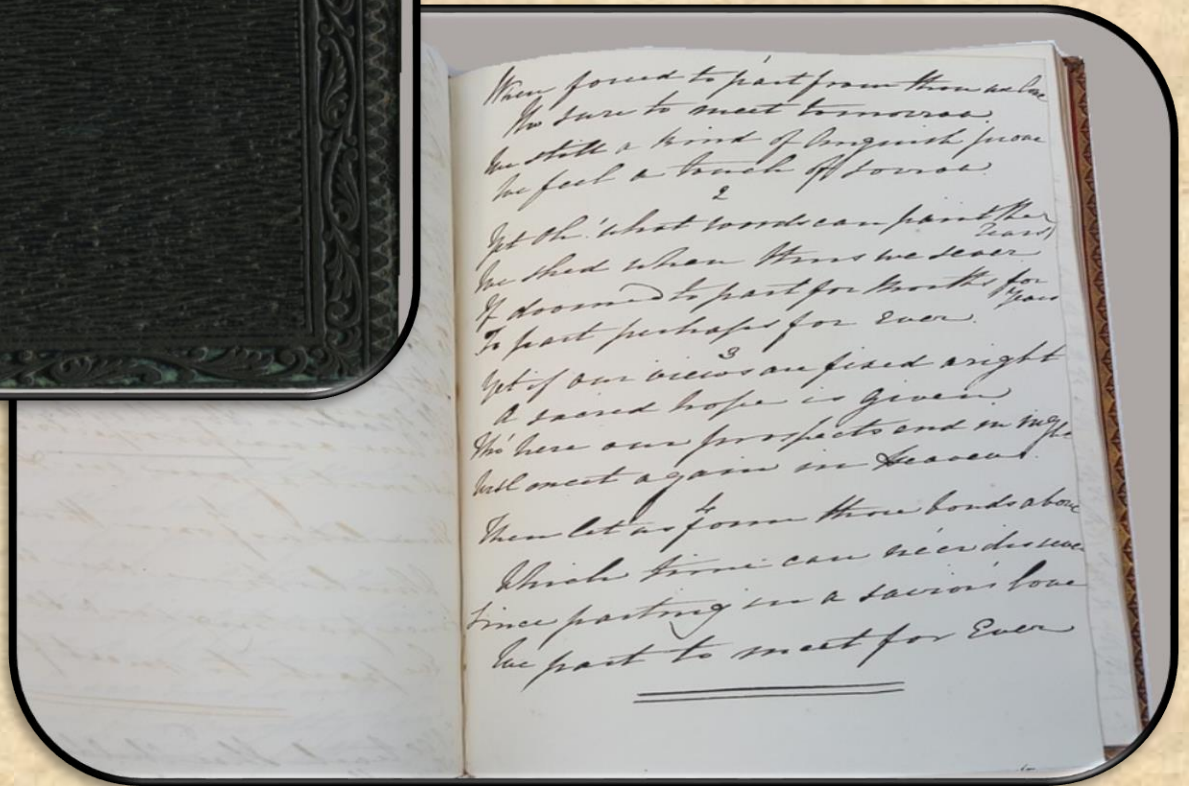 1
When forced to part from those we love
Tho sure to meet tomorrow
We still a kind of Anguish prove
We feel a touch of Sorrow.
2
Yet Oh! what words can paint the
Tears
We shed when thus we sever
If doomed to part for Months for
Years
To part perhaps for Ever.
3
Yet if our views are fixed aright
A sacred hope is given
Tho' here our prospects end in night
We'll meet again in Heaven.
4
Then let us form those bonds above
Which time can ne'er dissever
Since parting in a Savior's love
We part to meet for Ever